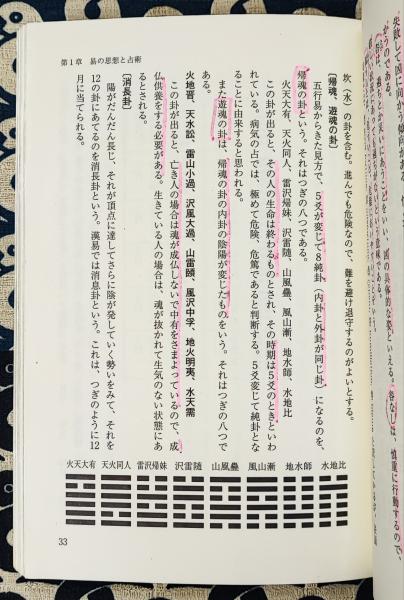 第1章 易の思想と占術
坎(水)の卦を含む。進んでも危険なので、難を避け退守するのがよいとする。
〔帰魂、遊魂の卦〕
五行易からきた見方で、5爻が変じて8純卦(内卦と外卦が同じ卦)になるのを、
帰魂の卦という。それはつぎの八つである。
火天大有、天火同人、雷沢帰妹、沢雷随、山風蠱、風山漸、地水師、水地比
この卦が出ると、その人の生命は終わるものとされ、その時期は5爻のときといわ
れている。病気の占では、極めて危険、危篤であると判断する。5爻変じて純卦とな
ることに由来すると思われる。
また遊魂の卦は、帰魂の卦の内卦の陰陽が変じたものをいう。それはつぎの八つで
ある。
火地晋、天水訟、雷山小過、沢風大過、山雷頤、風沢中孚、地火明夷、水天需
この卦が出ると、亡き人の場合は魂が成仏しないで中有をさまよっているので、成
仏供養をする必要がある。生きている人の場合は、魂が抜かれて生気のない状態にあ
るとされる。
〔消長卦〕
陽がだんだん長じ、それが頂点に達してさらに陰が発していく勢いをみて、それを
12の卦にあてるのを消長卦という。漢易では消息卦という。これは、つぎのように12
月に当てられる。
火天大有 天火同人 雷沢帰妹 沢雷随 山風蠱 風山漸 地水師 水地比
33